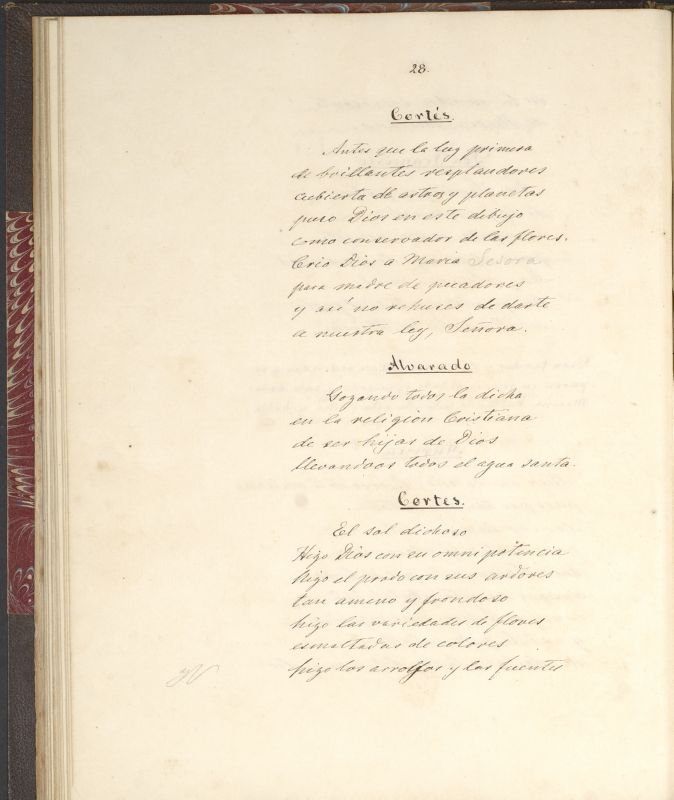 28.
Cortés.
Antes que la luz primera
de brillantes resplandores
cubierta de astros y planetas
puso Dios en este dibujo
como conservador de las flores.
Crio Dios a Maria Señora
para madre de pecadores
y así no rehuses de darte
a nuestra ley, Señora.
Alvarado
Gozando todos la dicha
en la religion Cristiana
de ser hijas de Dios
llevandoos todos el agua santa.
Cortes.
El sol dichoso
Hizo Dios con su omnipotencia
hizo el prado con sus ardores
tan ameno y frondoso
hizo las variedades de flores
esmaltadas de colores
hizo los arrollos y las fuentes